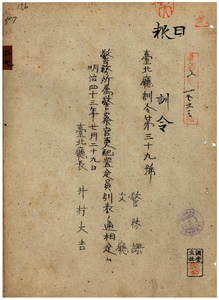 日報
訓令
臺北廳訓令第三十九號
警務課
支廳
警務所屬警察官吏配置定員別表ノ通相定ム
明治四十三年十二月二十九日
臺北廳長 井村大吉